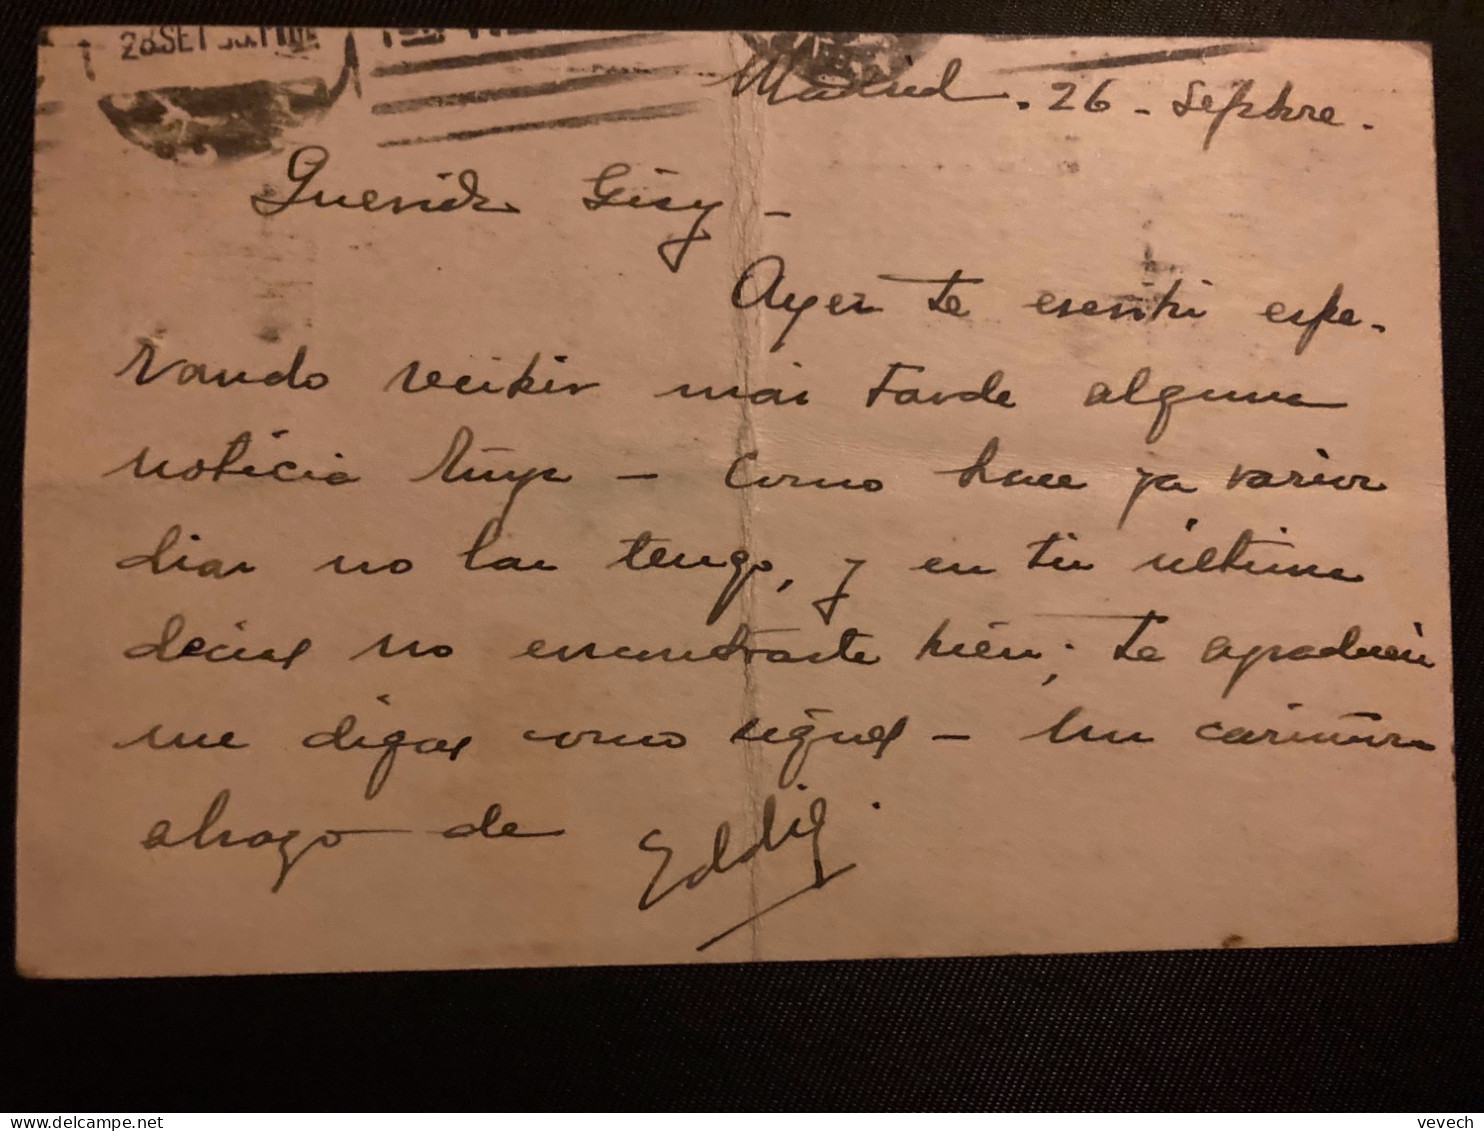 28 SET
Madrid . 26 - Sepbre.
Querida Gisy -
Ayer te escribi espe-
rando recibir más tarde alguna
noticia tuya - Como hace ya varios
dias no las tengo, y en tu última
decias no encontraste bien; te agradeceré
me digas como sigues - Un cariñoso
abrazo de
Eddy.
vevech